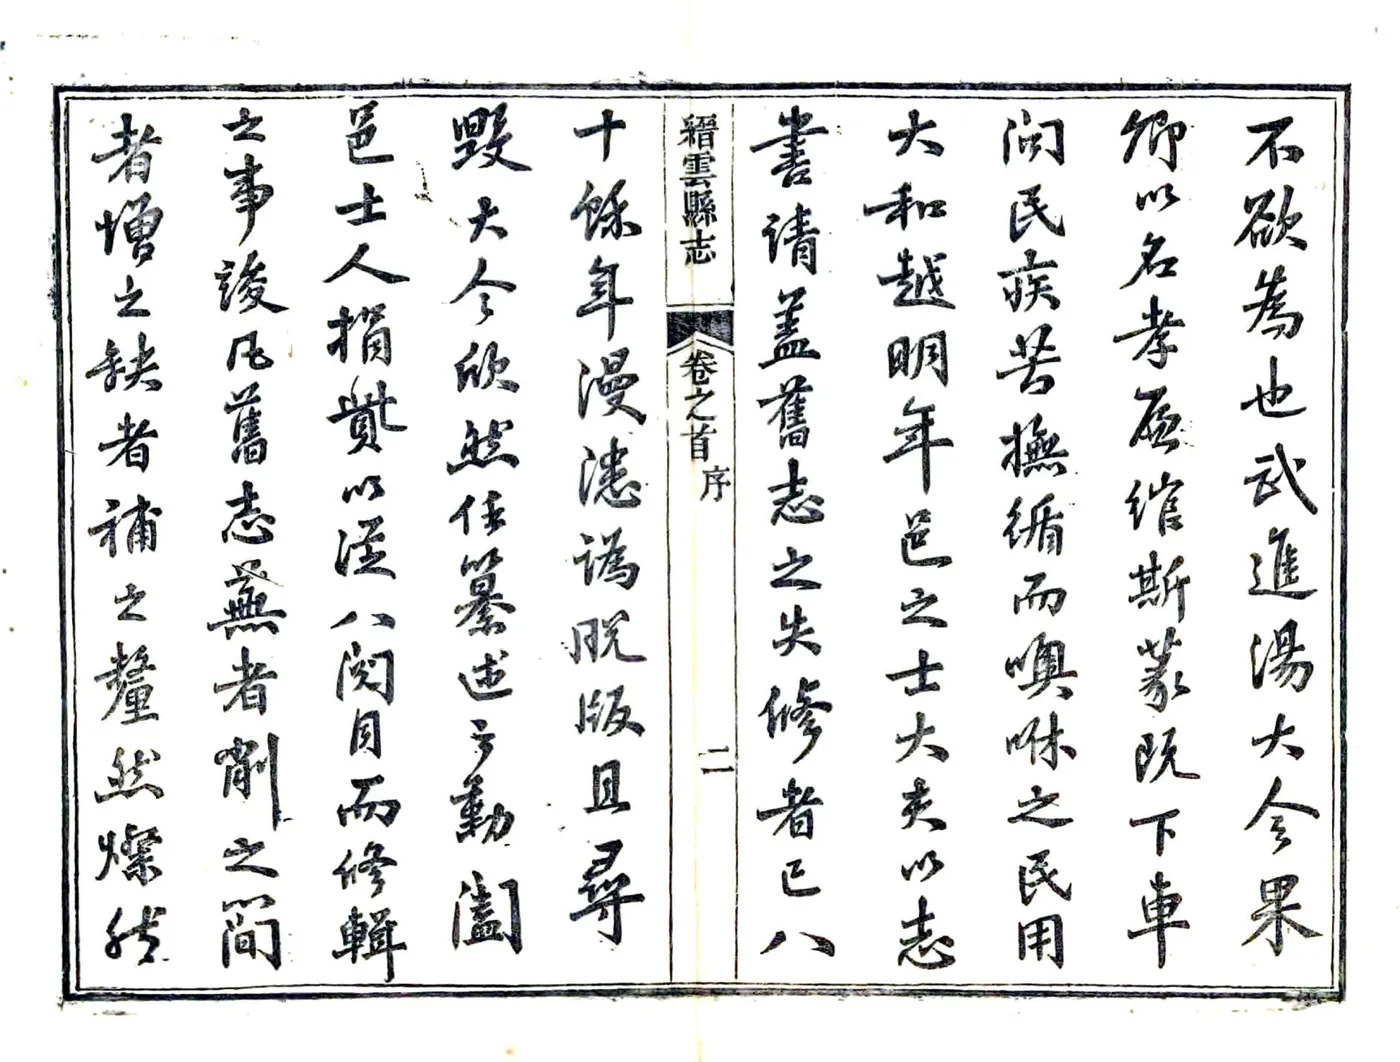 不欲為也武進湯大令果
卿以名孝廉綰斯篆既下車
問民疾苦撫循而噢咻之民用
大和越明年邑之士大夫以志
書請蓋舊志之失修者已八
縉雲縣志
卷之首
序
二
十餘年漫漶譌脫版且尋
毀大令欣然任纂述方勤闔
邑士人捐貲以從八閱月而修輯
之事竣凡舊志蕪者削之簡
者增之缺者補之釐然燦然